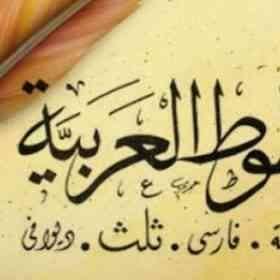 وط العربية
ة . فارسى . ثلث . ديوانى